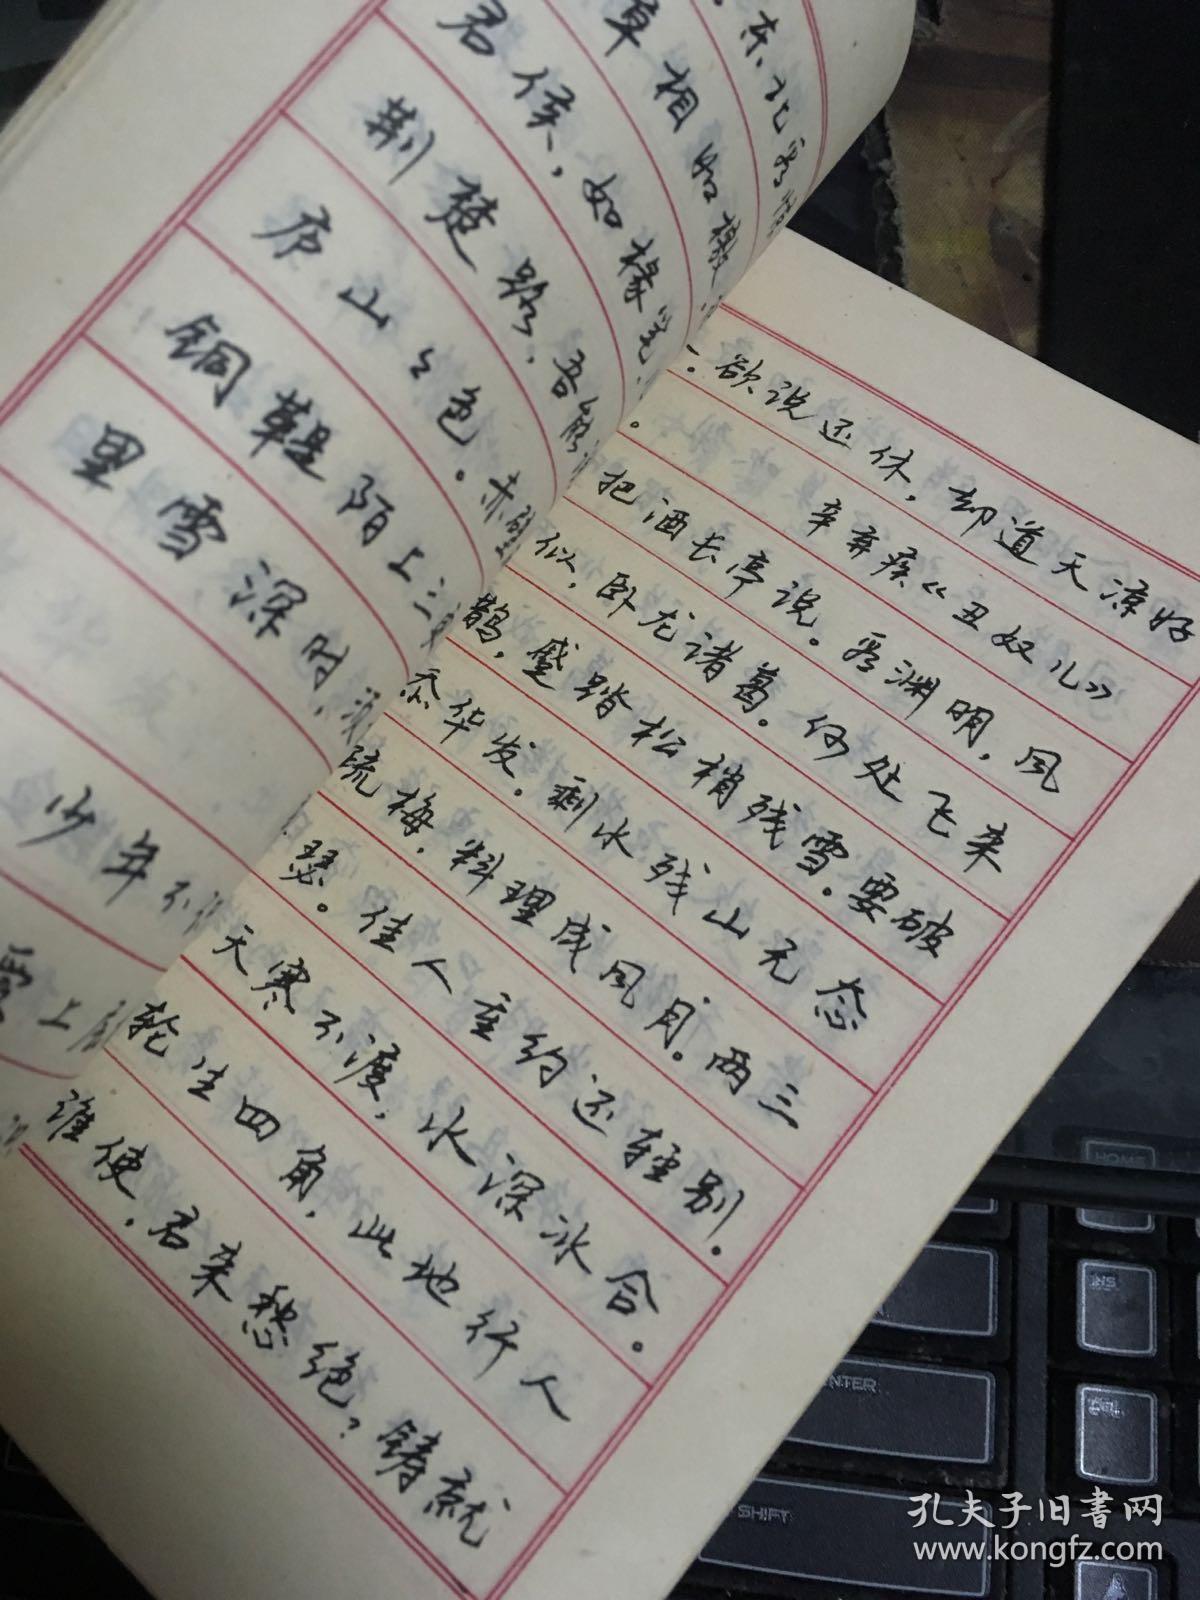 东北看
草相如檄
君侯，如椽笔，
荆楚路，吾能
庐山々色。赤壁
铜鞮陌上三更
里雪深时，须
少年不识
爱上层
欲说还休，却道天凉好
辛弃疾《丑奴儿》
把酒长亭说。看渊明，风
似，卧龙诸葛。何处飞来
鹊，蹙踏松梢残雪。要破
华发。剩水残山无态
疏梅，料理成风月。两三
瑟。佳人重约还轻别。
天寒不渡，水深冰合。
轮生四角，此地行人
谁使，君来愁绝？铸就
HOME
INS
ENTER
DEL
SHIFT
孔夫子旧書网
www.kongfz.com